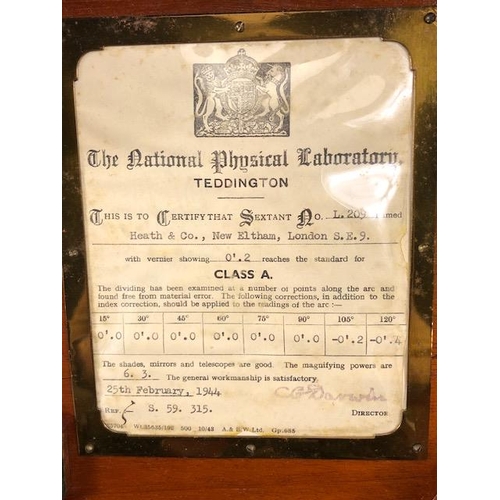 The National Physical Laboratory,
TEDDINGTON
THIS IS TO CERTIFY THAT SEXTANT NO. L.209 named
Heath & Co., New Eltham, London S.E.9.
with vernier showing 0'.2 reaches the standard for
CLASS A.
The dividing has been examined at a number of points along the arc and
found free from material error. The following corrections, in addition to the
index correction, should be applied to the readings of the arc :—
15° 30° 45° 60° 75° 90° 105° 120°
0'.0 0'.0 0'.0 0'.0 0'.0 0'.0 -0'.2 -0'.4
The shades, mirrors and telescopes are good. The magnifying powers are
6. 3. The general workmanship is satisfactory.
25th February, 1944 C G Darwin
REF. S. 59. 315. DIRECTOR
500 10/43 A. & E.W. Ltd. Gp. 685